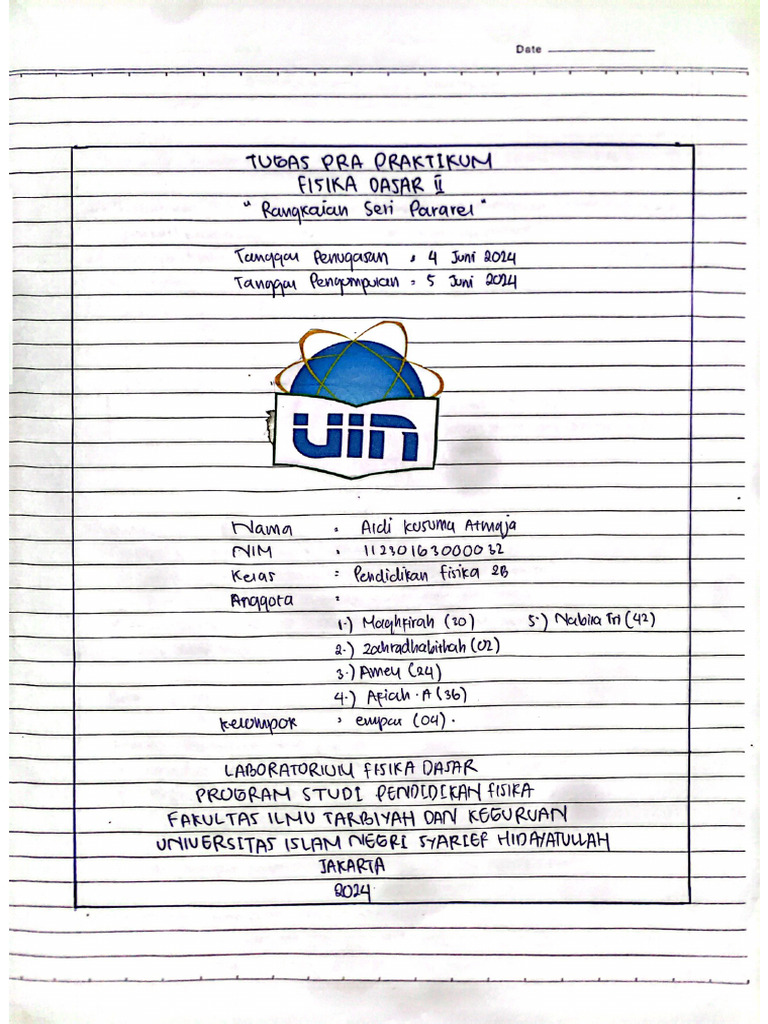 Date
TUGAS PRA PRAKTIKUM
FISIKA DASAR II
"Rangkaian Seri Pararel"
Tanggal Penugasan : 4 Juni 2024
Tanggal Pengumpulan : 5 Juni 2024
UIN
Nama : Aldi Kusuma Atmaja
NIM : 11230163000032
Kelas : Pendidikan Fisika 2B
Anggota :
1.) Maghfirah (30) 5.) Nabila Tri (42)
2.) Zahradhabithah (02)
3.) Amey (24)
4.) Afiah.A (36)
Kelompok : empat (04).
LABORATORIUM FISIKA DASAR
PROGRAM STUDI PENDIDIKAN FISIKA
FAKULTAS ILMU TARBIYAH DAN KEGURUAN
UNIVERSITAS ISLAM NEGRI SYARIEF HIDAYATULLAH
JAKARTA
2024